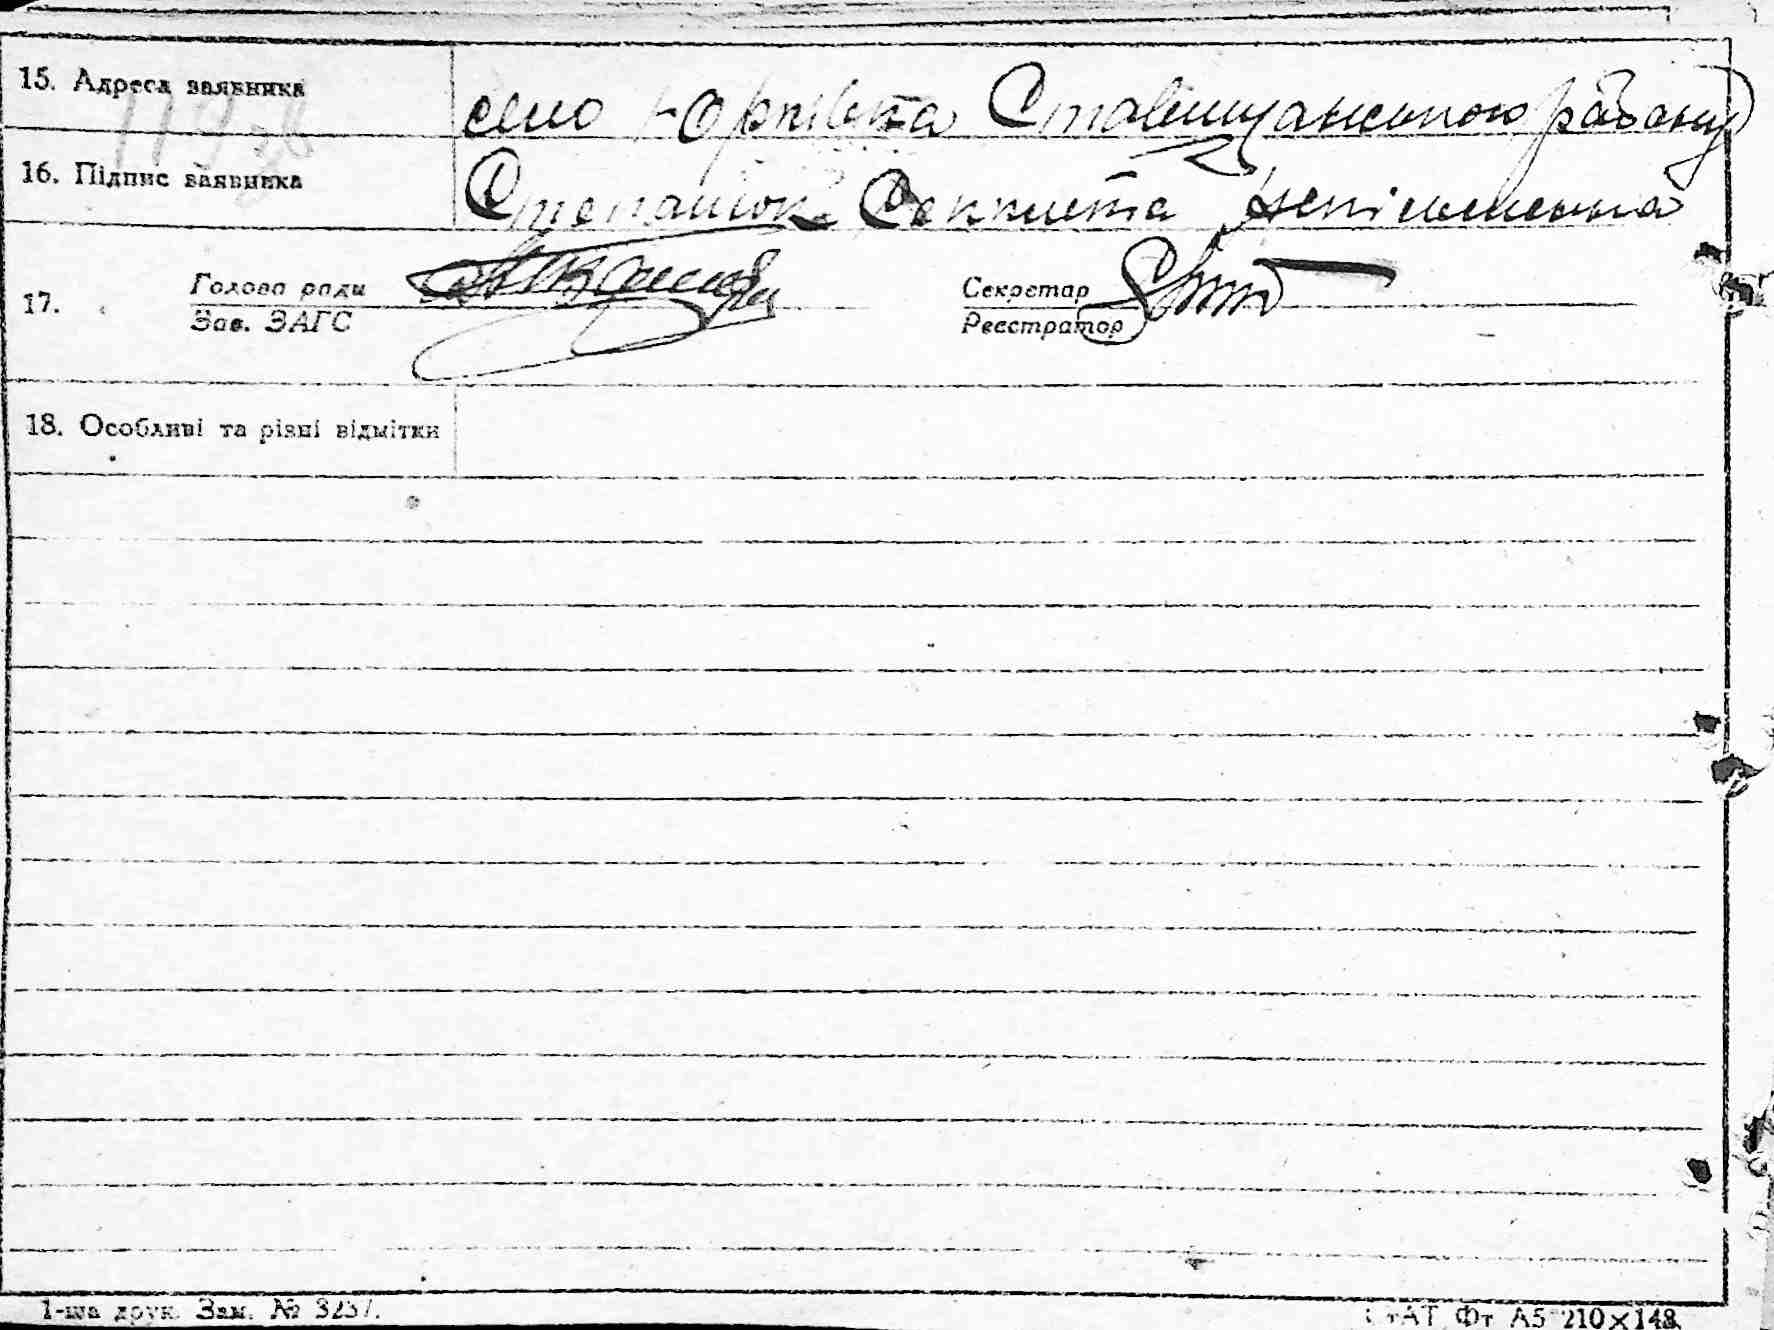 15. Адреса заявника село Юрківка Ставищанського району
16. Підпис заявника Степанюк Секлета неписьменна
17. Голова ради Секретар
Зав. ЗАГС Реєстратор
18. Особливі та різні відмітки
1-ша друк. Зам. № 3257. Фт А5 210×148